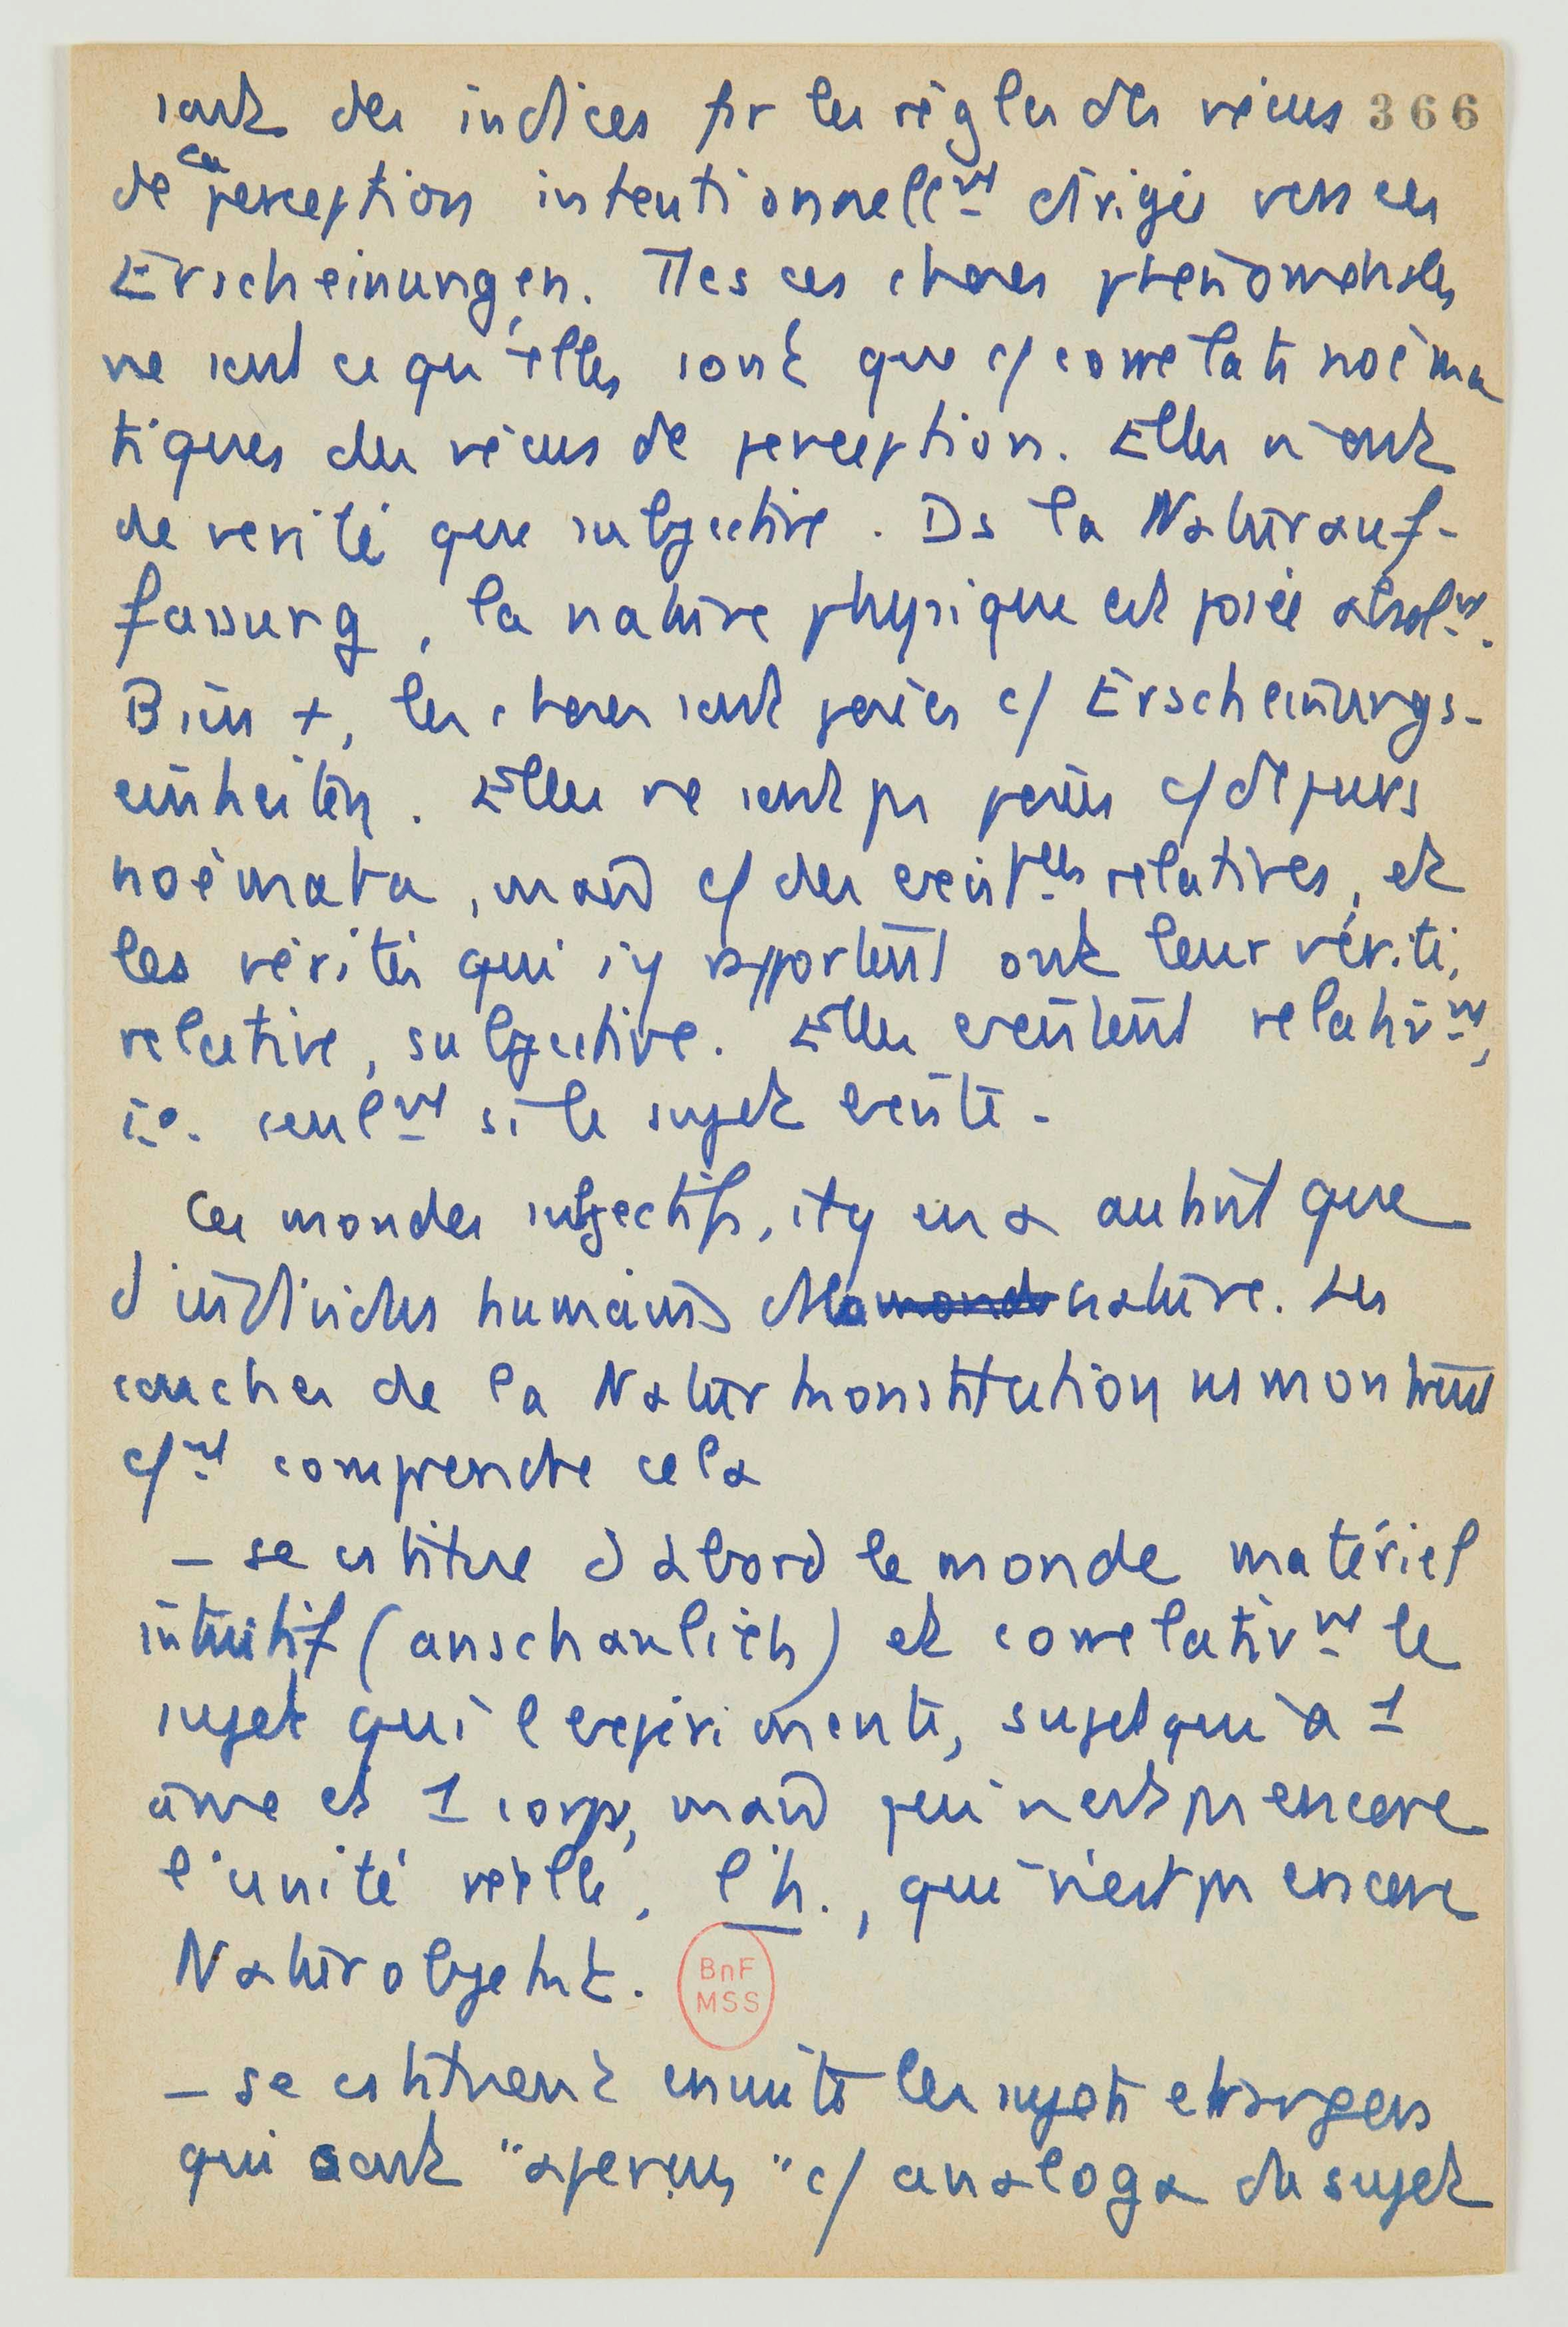 sont des indices pr les règles des vécus 366
de ce perception intentionnellmt dirigés vers ces
Erscheinungen. Ttes ces choses phénoménales
ne sont ce qu'elles sont que c/ corrélats noéma
tiques des vécus de perception. Elles n'ont
de vérité que subjective. Ds la Naturauf-
fassung, la nature physique est posée absolmt.
Bien +, les choses sont posées c/ Erscheinungs-
einheiten. Elles ne sont pas posées c/ de purs
noèmata, mais c/ des existces relatives, et
les vérités qui s'y rapportent ont leur vérité
relative, subjective. Elles existent relativmt,
i.e. seulmt si le sujet existe.
Ces mondes subjectifs, il y en a autant que
d'individus humains ds la monde nature. Les
couches de la Naturkonstitution ns montrent
c/mt comprendre cela
– se cstitue d'abord le monde matériel
intuitif (anschaulich) et corrélativmt le
sujet qui l'expérimente, sujet qui a 1
âme et 1 corps, mais qui n'est pas encore
l'unité réelle, l'h., qui n'est pas encore
Naturobjekt.
BnF
MSS
– se cstituent ensuite les sujets étrangers
qui sont "aperçus" c/ analoga du sujet